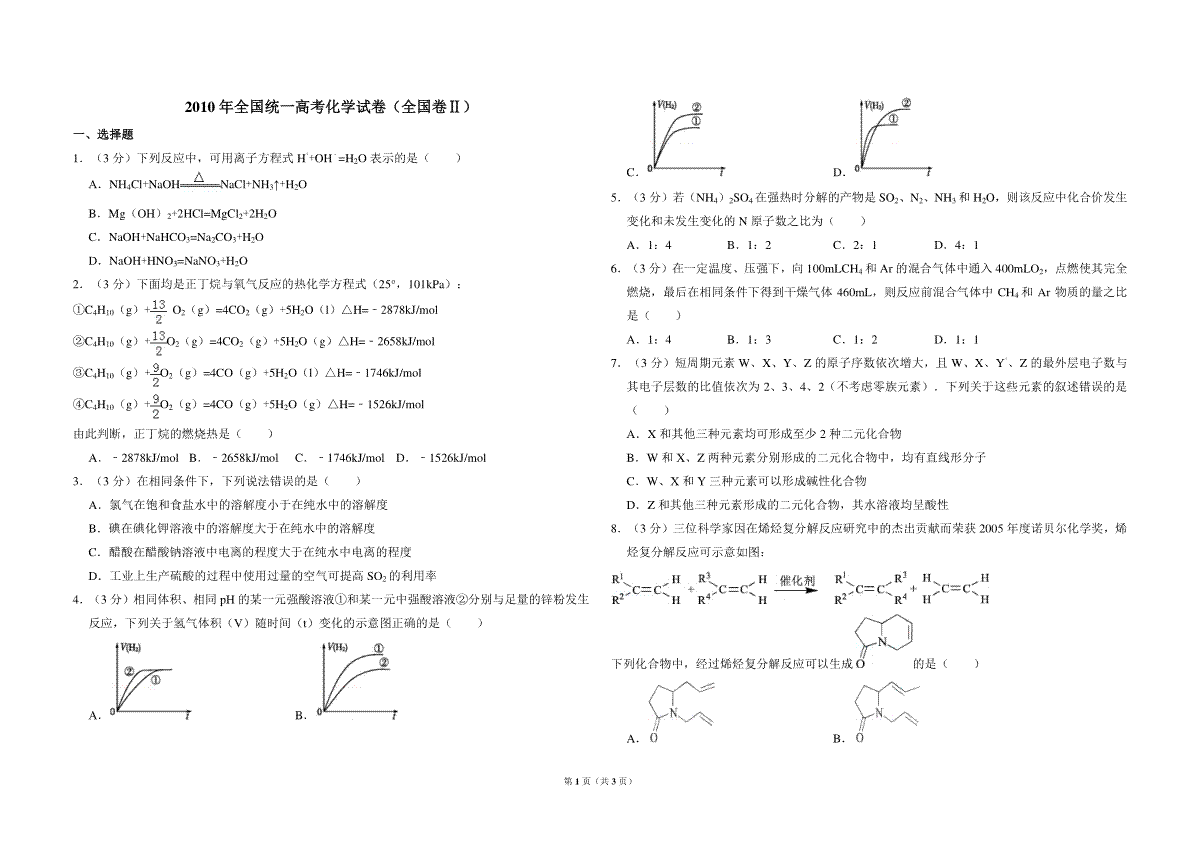 2010 年全国统一高考化学试卷（全国卷Ⅱ）
一、选择题
1．（3 分）下列反应中，可用离子方程式 H⁺+OH⁻=H₂O 表示的是（　　）
A．NH₄Cl+NaOH △ NaCl+NH₃↑+H₂O
B．Mg（OH）₂+2HCl=MgCl₂+2H₂O
C．NaOH+NaHCO₃=Na₂CO₃+H₂O
D．NaOH+HNO₃=NaNO₃+H₂O
2．（3 分）下面均是正丁烷与氧气反应的热化学方程式（25°，101kPa）：
①C₄H₁₀（g）+13/2 O₂（g）=4CO₂（g）+5H₂O（l）△H=﹣2878kJ/mol
②C₄H₁₀（g）+13/2 O₂（g）=4CO₂（g）+5H₂O（g）△H=﹣2658kJ/mol
③C₄H₁₀（g）+9/2 O₂（g）=4CO（g）+5H₂O（l）△H=﹣1746kJ/mol
④C₄H₁₀（g）+9/2 O₂（g）=4CO（g）+5H₂O（g）△H=﹣1526kJ/mol
由此判断，正丁烷的燃烧热是（　　）
A．﹣2878kJ/mol B．﹣2658kJ/mol C．﹣1746kJ/mol D．﹣1526kJ/mol
3．（3 分）在相同条件下，下列说法错误的是（　　）
A．氯气在饱和食盐水中的溶解度小于在纯水中的溶解度
B．碘在碘化钾溶液中的溶解度大于在纯水中的溶解度
C．醋酸在醋酸钠溶液中电离的程度大于在纯水中电离的程度
D．工业上生产硫酸的过程中使用过量的空气可提高 SO₂ 的利用率
4．（3 分）相同体积、相同 pH 的某一元强酸溶液①和某一元中强酸溶液②分别与足量的锌粉发生
反应，下列关于氢气体积（V）随时间（t）变化的示意图正确的是（　　）
A． V(H₂) ② ① 0 t B． V(H₂) ① ② 0 t
C． V(H₂) ② ① 0 t D． V(H₂) ② ① 0 t
5．（3 分）若（NH₄）₂SO₄ 在强热时分解的产物是 SO₂、N₂、NH₃ 和 H₂O，则该反应中化合价发生
变化和未发生变化的 N 原子数之比为（　　）
A．1：4 B．1：2 C．2：1 D．4：1
6．（3 分）在一定温度、压强下，向 100mLCH₄ 和 Ar 的混合气体中通入 400mLO₂，点燃使其完全
燃烧，最后在相同条件下得到干燥气体 460mL，则反应前混合气体中 CH₄ 和 Ar 物质的量之比
是（　　）
A．1：4 B．1：3 C．1：2 D．1：1
7．（3 分）短周期元素 W、X、Y、Z 的原子序数依次增大，且 W、X、Y⁺、Z 的最外层电子数与
其电子层数的比值依次为 2、3、4、2（不考虑零族元素）．下列关于这些元素的叙述错误的是
（　　）
A．X 和其他三种元素均可形成至少 2 种二元化合物
B．W 和 X、Z 两种元素分别形成的二元化合物中，均有直线形分子
C．W、X 和 Y 三种元素可以形成碱性化合物
D．Z 和其他三种元素形成的二元化合物，其水溶液均呈酸性
8．（3 分）三位科学家因在烯烃复分解反应研究中的杰出贡献而荣获 2005 年度诺贝尔化学奖，烯
烃复分解反应可示意如图：
R¹ R² C=C H H + R³ R⁴ C=C H H 催化剂 R¹ R² C=C R³ R⁴ + H H C=C H H
下列化合物中，经过烯烃复分解反应可以生成 N O 的是（　　）
A． N O B． N O
第 1 页（共 3 页）